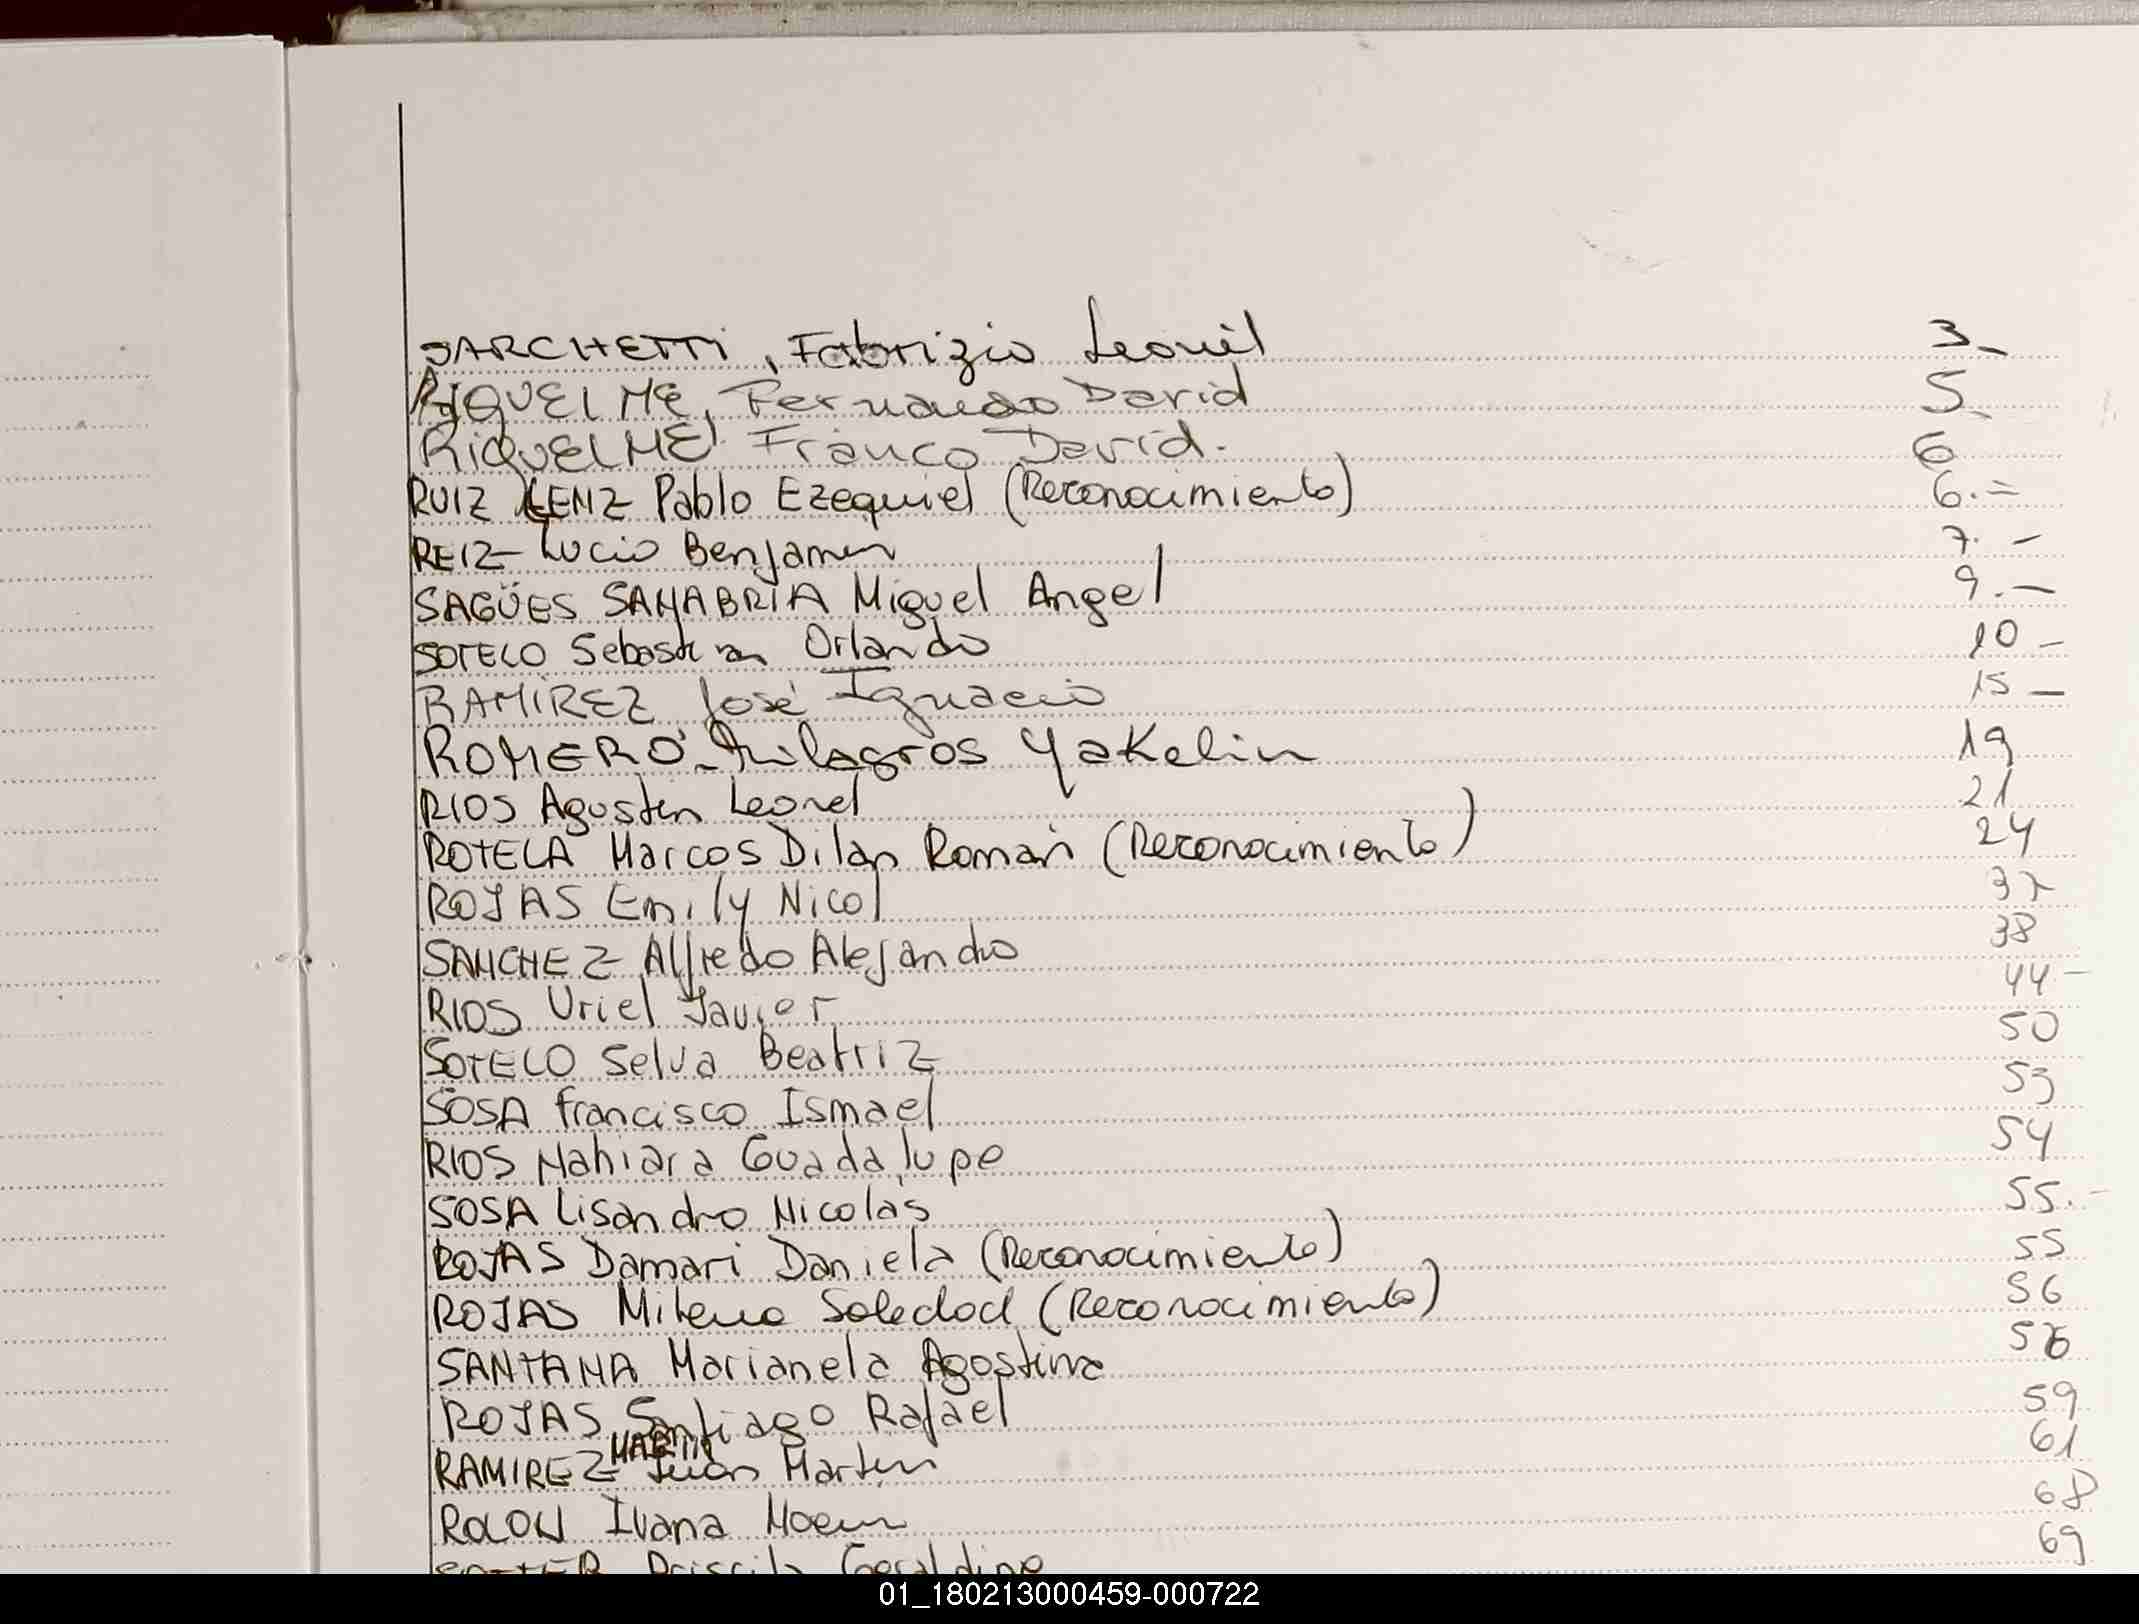 SARCHETTI, Fabrizio Leonel 3_
RIQUELME, Fernando David 5_
RIQUELME Franco David. 6
RUIZ LENZ Pablo Ezequiel (Reconocimiento) 6.=
REIZ Lucio Benjamin 7. -
SAGÜES SANABRIA Miguel Angel 9.-
SOTELO Sebastian Orlando 10 -
RAMIREZ José Ignacio 15 -
ROMERO Milagros Yakelin 19
RIOS Agustin Leonel 21
ROTELA Marcos Dilan Roman (Reconocimiento) 24
ROJAS Emily Nicol 37
SANCHEZ Alfredo Alejandro 38
RIOS Uriel Javier 44 -
SOTELO Selva Beatriz 50
SOSA Francisco Ismael 53
RIOS Nahiara Guadalupe 54
SOSA Lisandro Nicolás 55.-
ROJAS Damari Daniela (Reconocimiento) 55
ROJAS Milena Soledad (Reconocimiento) 56
SANTANA Marianela Agostina 56
ROJAS Santiago Rafael 59
MARTIN
RAMIREZ Juan Martin 61
ROLON Ivana Noem 68
Priscila Geraldine 69
01_180213000459-000722